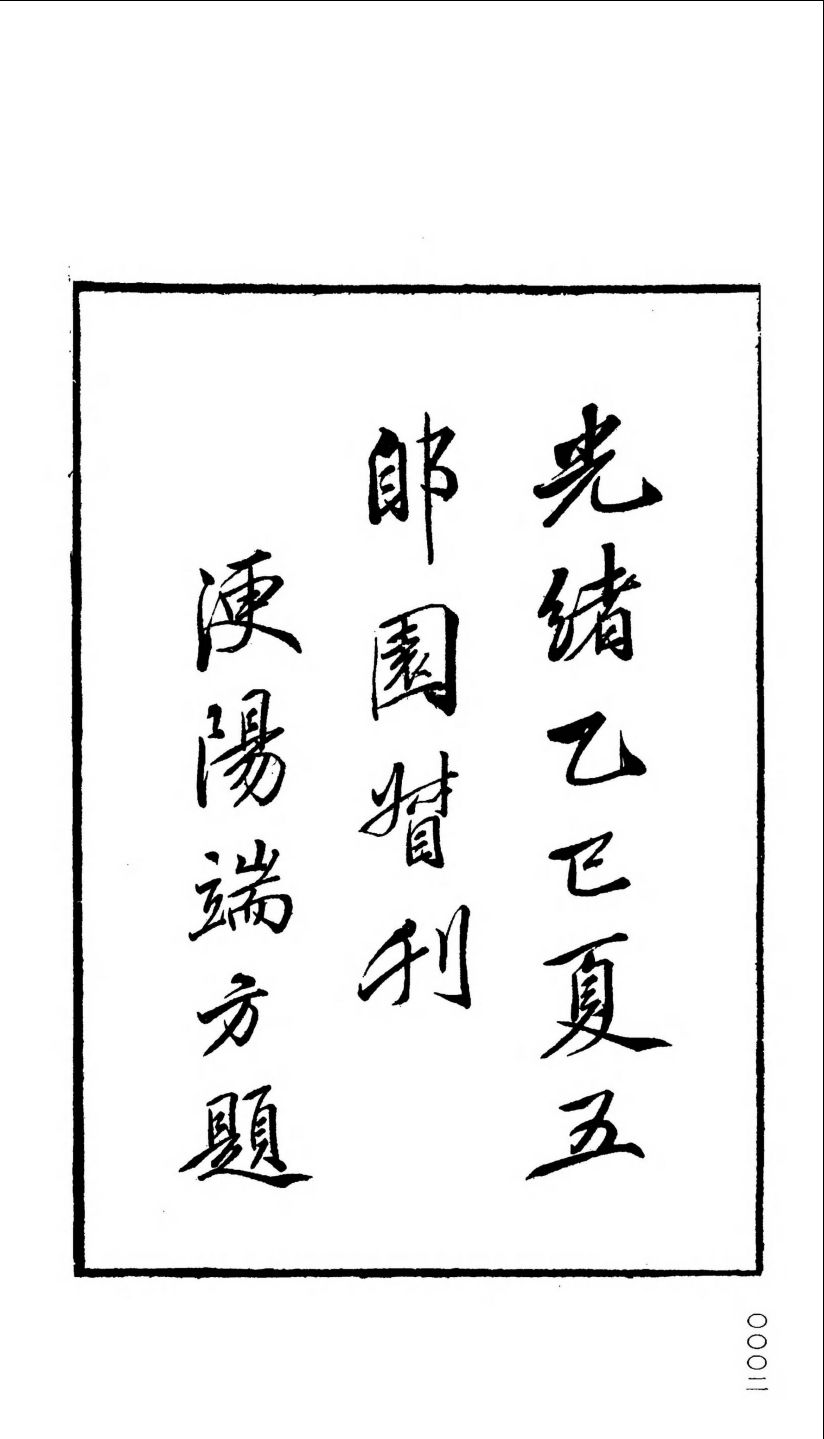 光緒乙巳夏五
郋園督刊
浭陽端方題
〇〇〇二